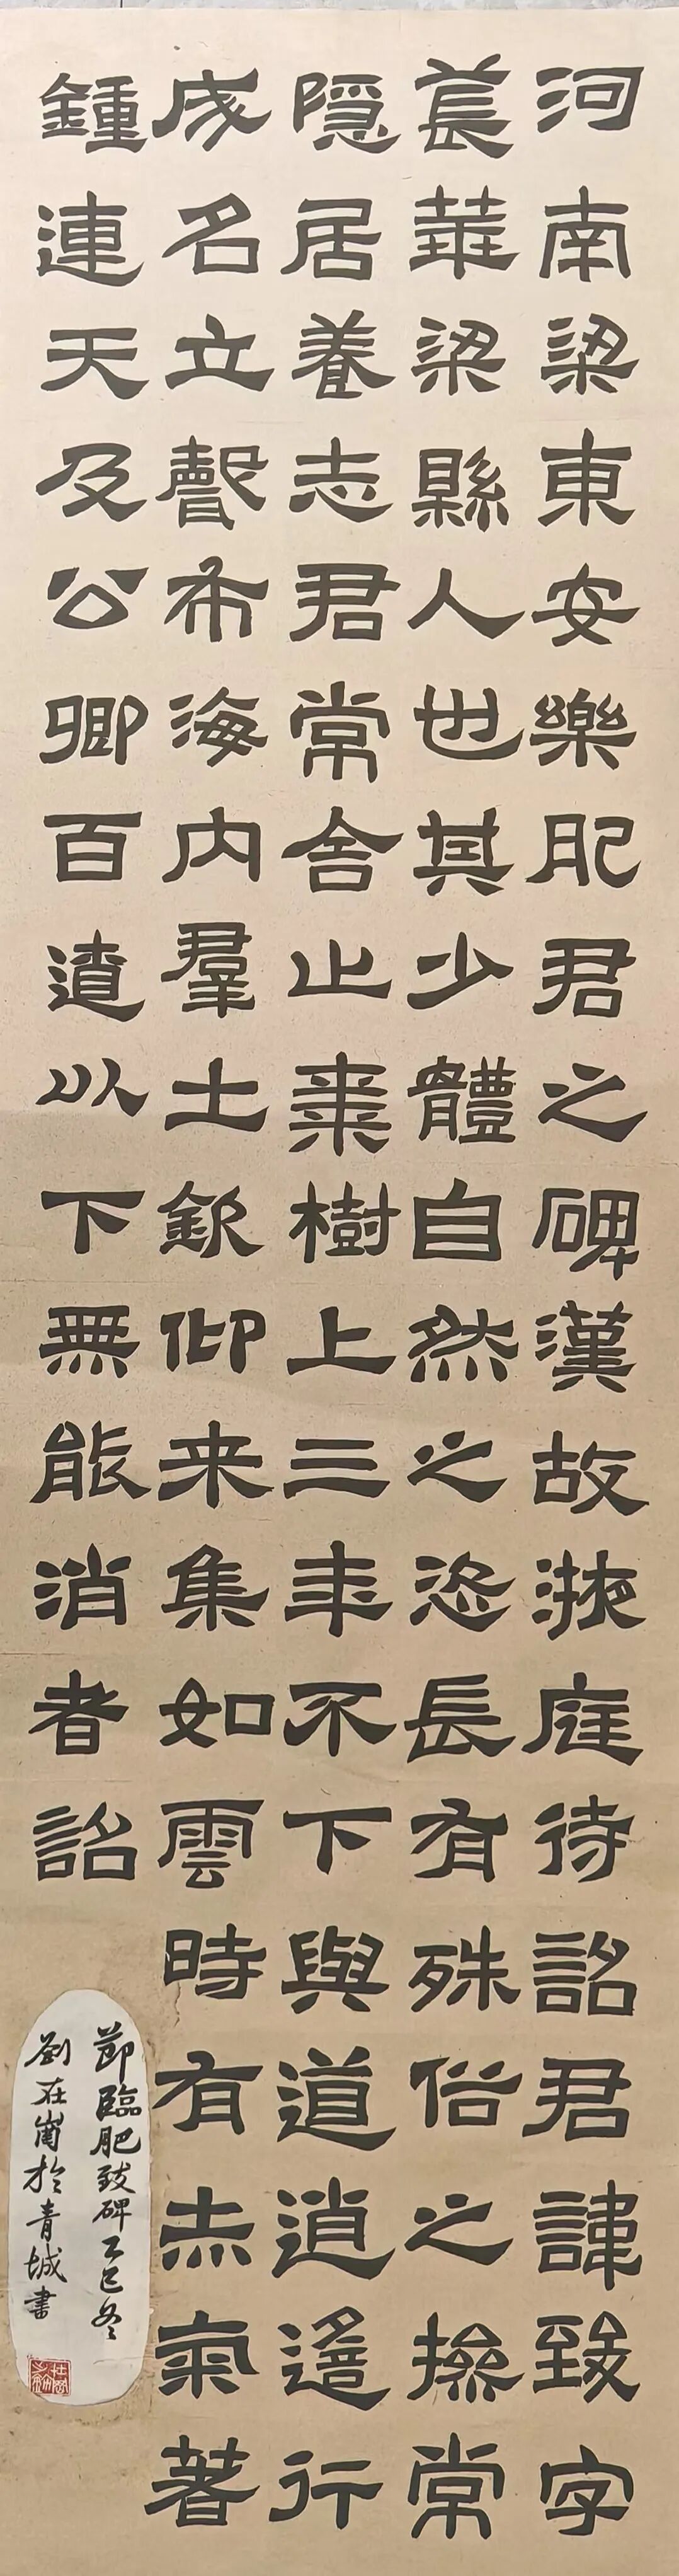 河南梁東安樂肥君之碑漢故掖庭待詔君諱致字
萇華梁縣人也其少體自然之恣長有殊俗之操常
隱居養志君常舍止棗樹上三年不下與道逍遙行
成名立聲布海內羣士欽仰来集如雲時有赤氣著
鍾連天及公卿百遼以下無能消者詔
節臨肥致碑乙巳冬
劉在崗於青城書